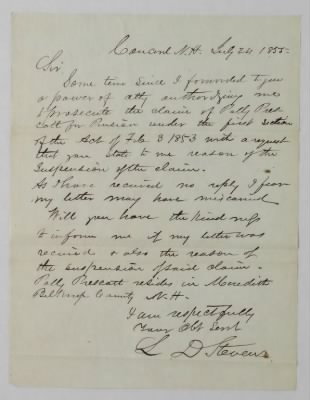 Concord N.H. July 24 1855.
Sir
Some time since I forwarded to you
a power of atty authorizing me
to prosecute the claim of Polly Pres-
cott for Pension under the first section
of the Act of Feb 3 1853 with a request
that you state to me reason of the
suspension of the claim.
As I have received no reply I fear
my letter may have miscarried
Will you have the kindness
to inform me if my letter was
received & also the reason of
the suspension of said claim.
Polly Prescott resides in Meredith
Belknap County N.H.
I am respectfully
Your Obt Servt
L D Stevens